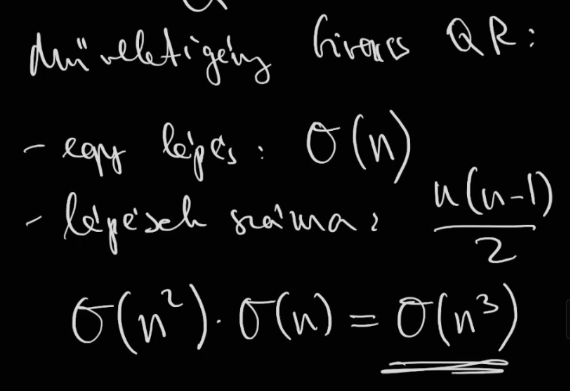 műveletigény Givens QR:
- egy lépés: O(n)
- lépések száma: n(n-1)/2
O(n²)·O(n) = O(n³)